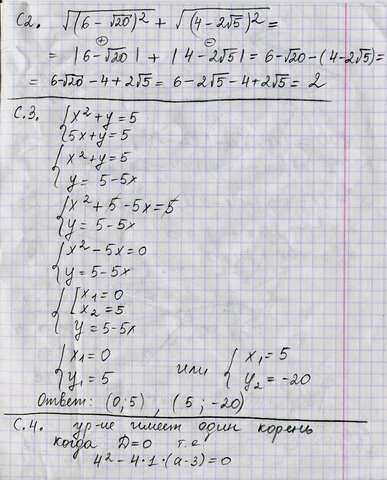 С2. √(6-√20)² + √(4-2√5)² =
= |6-√20| + |4-2√5| = 6-√20-(4-2√5)=
= 6-√20-4+2√5 = 6-2√5-4+2√5 = 2
С.3. { x²+y=5
5x+y=5
{ x²+y=5
y= 5-5x
{ x²+5-5x=5
y= 5-5x
{ x²-5x=0
y=5-5x
{ [ x₁=0
x₂=5
y= 5-5x
{ x₁=0 или { x₁=5
y₁=5 y₂=-20
Ответ: (0;5), (5;-20)
С.4. ур-ие имеет один корень
когда D=0 т.е
4²-4·1·(a-3)=0